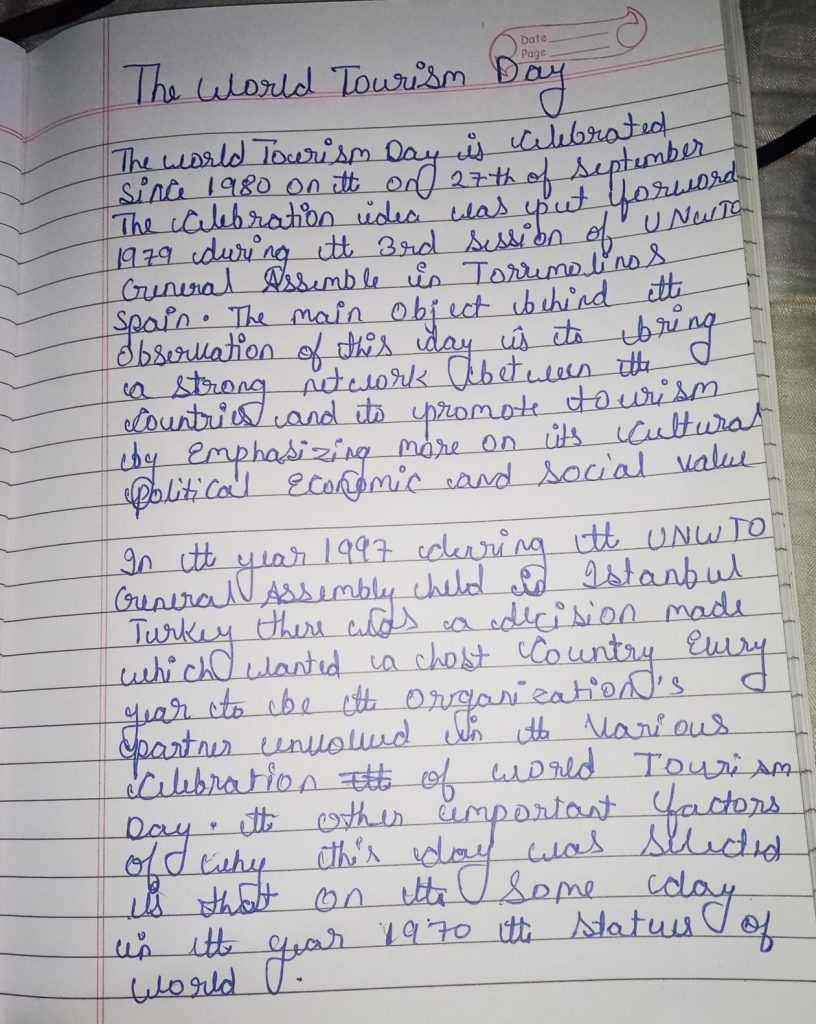 Date
Page
The World Tourism Day
The world Tourism Day is celebrated
since 1980 on the on 27th of september
The celebration idea was put forword
1979 during the 3rd session of UNWTO
General Assemble in Torremolinos
Spain. The main object behind the
observation of this day is to bring
a strong network between the
countries and to promote tourism
by emphasizing more on its cultural
political economic and social value
In the year 1997 during the UNWTO
General Assembly held in Istanbul
Turkey there was a decision made
which wanted a host country every
year to be the organization's
partner involved in the various
celebration the of world Tourism
Day. the other important factors
of why this day was selected
is that on the some day
in the year 1970 the status of
world.